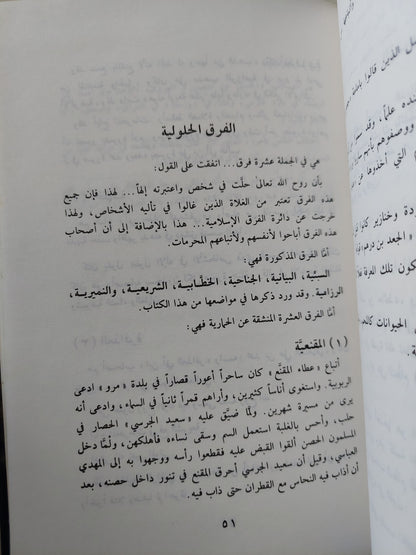 الفرق الحلولية
هي في الجملة عشرة فرق... اتفقت على القول:
بأن روح الله تعالى حلَّت في شخص واعتبرته إلهاً... لهذا فإن جميع
هذه الفرق تعتبر من الغلاة الذين غالوا في تأليه الأشخاص، ولهذا
خرجت عن دائرة الفرق الإسلامية... هذا بالإضافة إلى أن أصحاب
هذه الفرق أباحوا لأنفسهم ولأتباعهم المحرمات.
أمّا الفرق المذكورة فهي:
السبئية، البيانية، الجناحية، الخطّابية، الشريعية، والنميرية،
الرزامية. وقد ورد ذكرها في مواضعها من هذا الكتاب.
أمّا الفرق العشرة المنشقة عن الحمارية فهي:
(١) المقنعيَّة
أتباع «عطاء المقنّع» كان ساحراً أعوراً قصاراً في بلدة «مرو» ادعى
الربوبية. واستغوى أناساً كثيرين، وأراهم قمراً ثانياً في السماء، وادعى أنه
يرى من مسيرة شهرين. ولمّا ضيّق عليه «سعيد الجرسي» الحصار في
حلب، وأحس بالغلبة استعمل السم وسقى نساءه فأهلكهن، ولمّا دخل
المسلمون الحصن ألقوا القبض عليه فقطعوا رأسه ووجهوا به إلى المهدي
العباسي، وقيل أن سعيد الجرسي أحرق المقنع في تنور داخل حصنه، بعد
أن أذاب فيه النحاس مع القطران حتى ذاب فيه.
٥١
ل الذين قالوا
عنده علماً، وقد
ووصفوهم بأنهم
التي أخذوها عن
ردة وخنازير كانوا
«الجعد بن درهم»
كون تلك المدة
الحيوانات كالعد